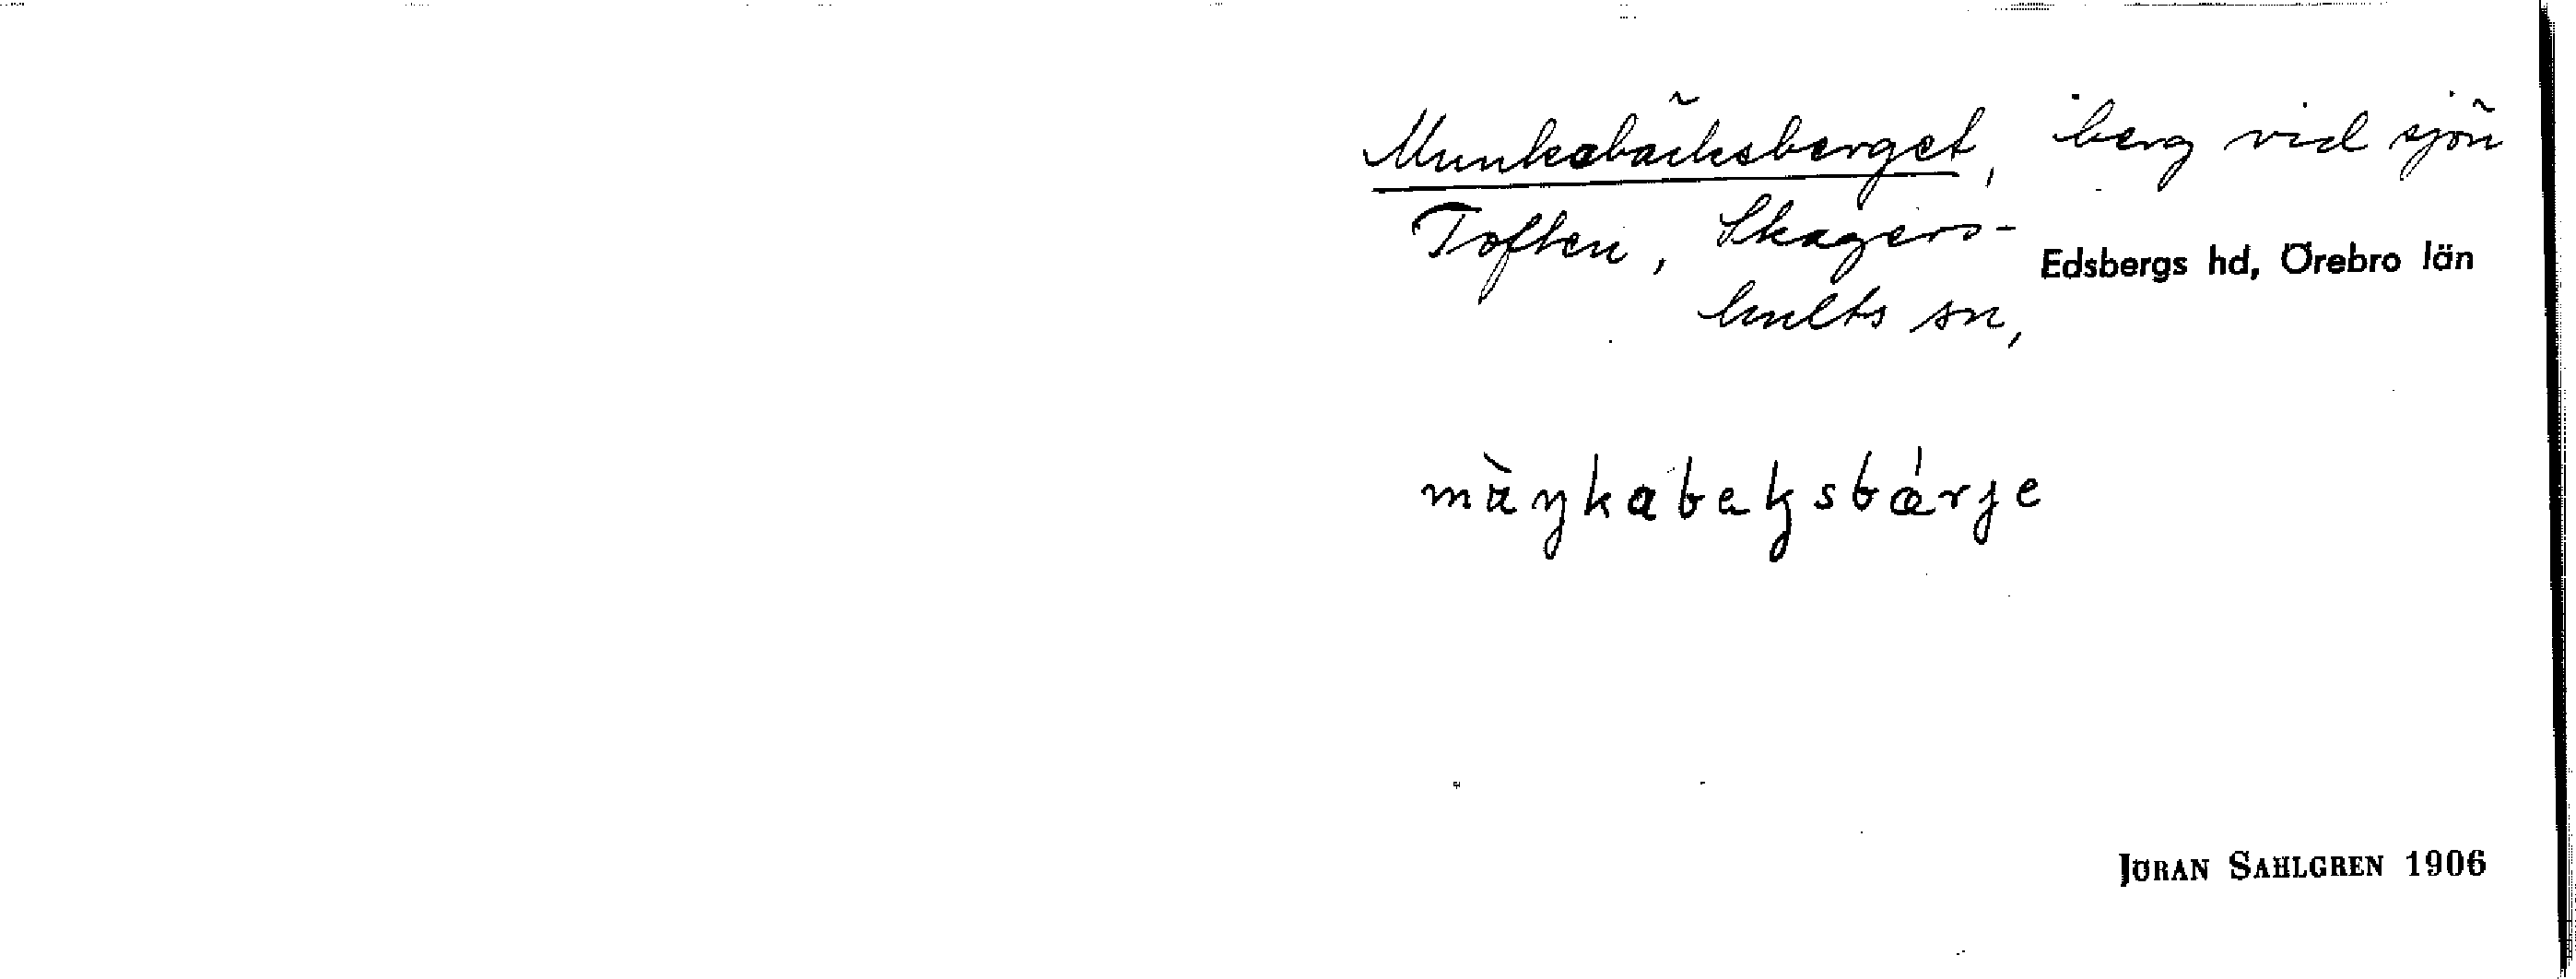 Munkabäcksberget, berg vid sjön
Toften, Skagers-
hults sn,
Edsbergs hd, Örebro län
mùŋkabaksbǽrje
JÖRAN SAHLGREN 1906